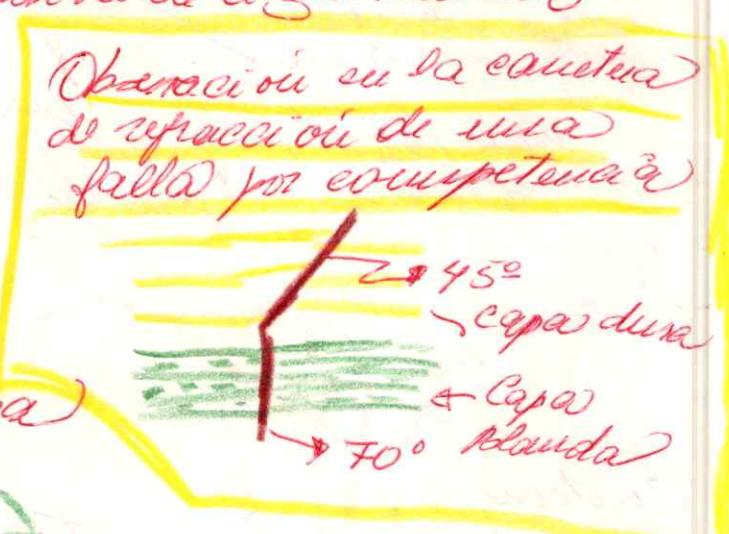 Observación en la carretera
de refracción de una
falla por competencia
45º
capa dura
Capa
blanda
70º